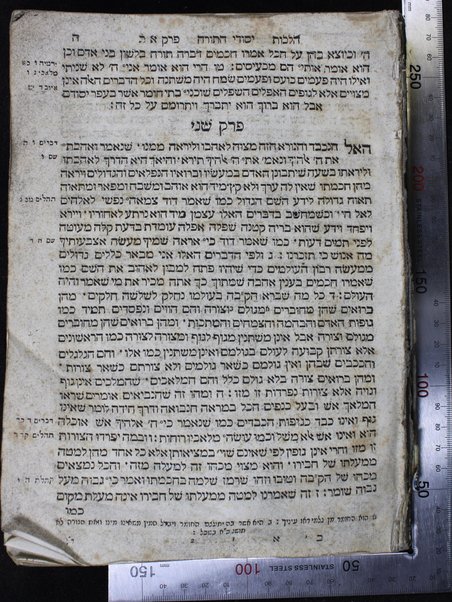 הלכות יסודי התורה פרק א ב ה
ה׳ וכיוצא בהן על הכל אמרו חכמים דיברה תורה בלשון בני אדם וכן
הוא אומר אותי הם מכעיסים: שהרי הוא אומר אני ה׳ לא שניתי
ואילו היה פעמים כועס ופעמים שמח היה משתנה וכל הדברים האלו אינן
מצויים אלא לגופים האפלים השפלים שוכני בתי חומר אשר בעפר יסודם
אבל הוא ברוך הוא יתברך ויתרומם על כל זה:
פרק שני
האל הנכבד והנורא הזה מצוה לאהבו וליראה ממנו׳ שנאמר ואהבת
את ה׳ אלהיך ונאמר את ה׳ אלהיך תירא: והיאך הוא הדרך לאהבתו
ויראתו בשעה שיתבונן האדם במעשיו וברואיו הנפלאים והגדולים ויראה
מהן חכמתו שאין לה ערך ולא קץ מיד הוא אוהב ומשבח ומפאר ומתאוה
תאוה גדולה לידע השם הגדול כמו שאמר דוד צמאה נפשי לאלהים
לאל חי׳ וכשמחשב בדברים האלו עצמן מיד הוא נרתע לאחוריו׳ ויירא
ויפחד וידע שהוא בריה קטנה שפלה אפלה עומדת בדעת קלה מעוטה
לפני תמים דעות׳ כמו שאמר דוד כי אראה שמיך מעשה אצבעותיך
מה אנוש כי תזכרנו: ולפי הדברים האלו אני מבאר כללים גדולים
ממעשה רבון העולמים כדי שיהיו פתח למבין לאהוב את השם כמו
שאמרו חכמים בענין אהבה שמתוך כך אתה מכיר את מי שאמר והיה
העולם: כל מה שברא הק״בה בעולמו נחלק לשלשה חלקים׳ מהן
ברואים שהן מחוברים מגולם וצורה והם הווים ונפסדים תמיד כמו
גופות האדם והבהמה והצמחים והמתכות׳ ומהן ברואים שהן מחוברים
מגולם וצורה אבל אינן משתנין מגוף לגוף ומצורה לצורה כמו הראשונים
אלא צורתן קבועה לעולם בגולמם ואינן משתנין כמו אלו׳ והם הגלגלים
והכוכבים שבהן ואין גולמם כשאר גולמים ולא צורתם כשאר צורות׳
ומהן ברואים צורה בלא גולם כלל והם המלאכים׳ שהמלאכים אינן גוף
וגויה אלא צורות נפרדות זו מזו: ומהו זה שהנביאים אומרים שראו
המלאך אש ובעל כנפים הכל במראה הנבואה ודרך חידה לומר שאינו
גוף ואינו כבד כגופות הכבדים כמו שנאמר כי ה׳ אלהיך אש אוכלה
הוא ואינו אש אלא משל וכמו עושה מלאכיו רוחות: ובמה יפרדו הצורות
זו מזו והרי אינן גופין לפי שאינם שוי׳ במציאותן אלא כל אחד מהן למטה
ממעלתו של חבירו׳ והוא מצוי מכחו זה למעלה מזה׳ והכל נמצאים
מכחו של הק״בה וטובו וזהו שרמז שלמה בחכמתו ואמר כי גבוה מעל
גבוה שומר: זה שאמרנו למטה ממעלתו של חבירו אינה מעלת מקום
כמו
STAINLESS STEEL
50
100
150
50
100
150
200
250